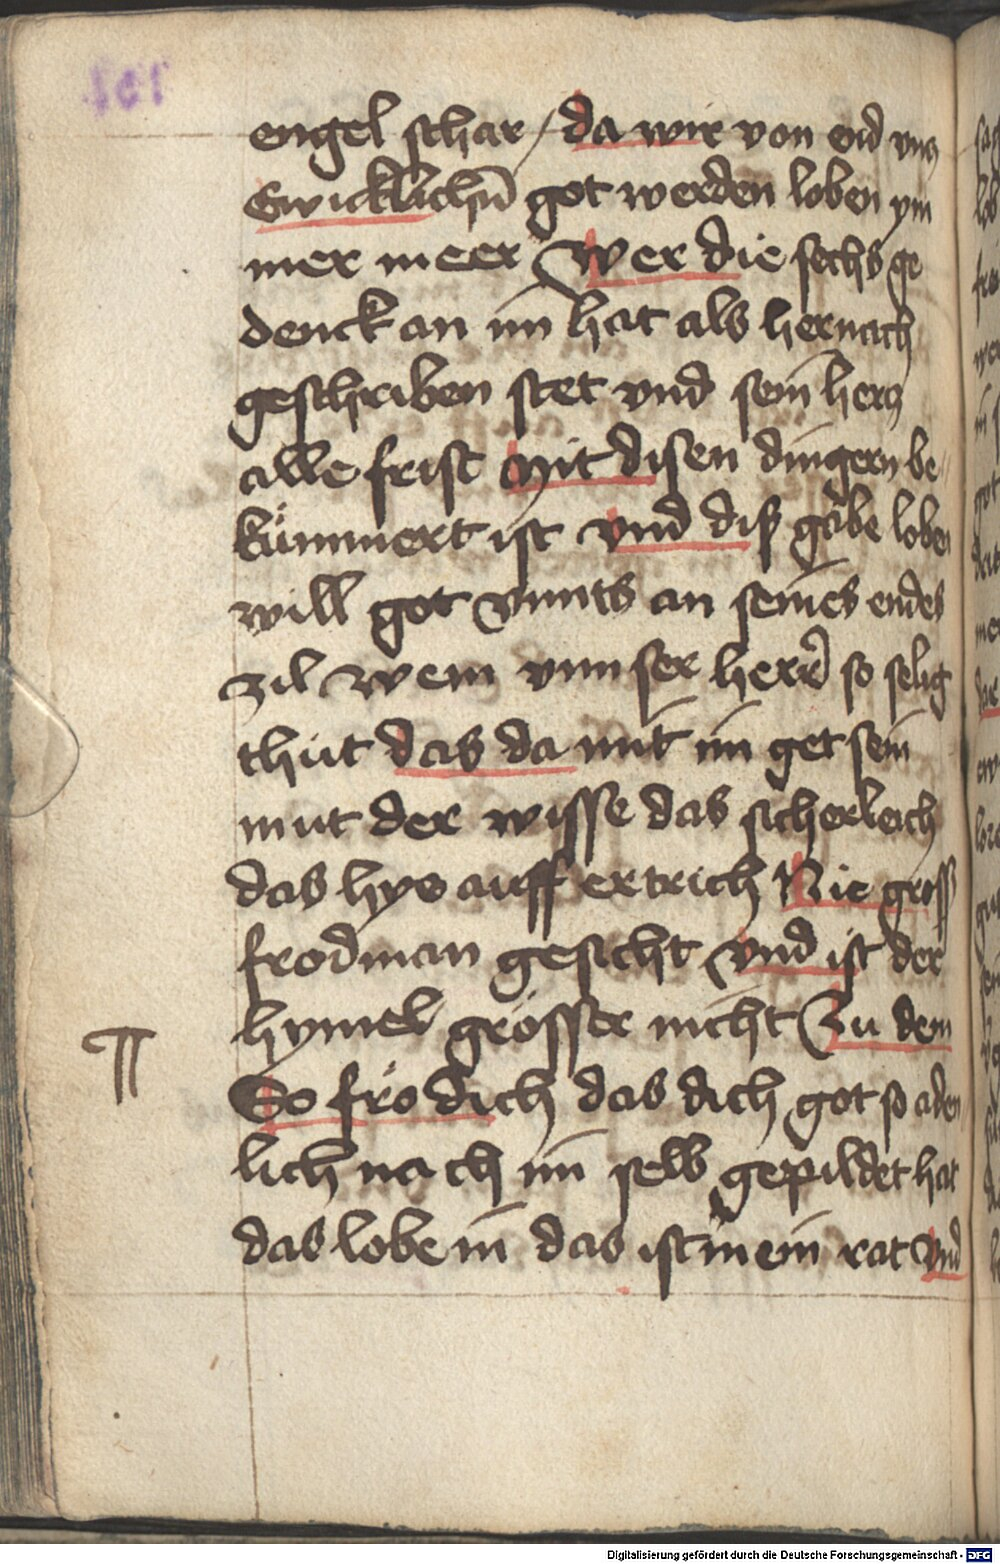 engel schar / da wir von end vnd
Ewicklichn̄ got werden loben ym
mer meer Wer die sechs ge
denck an im hat als hernach
geschriben stet vnd sein hercz
alle frist Mit disen dingern be
kümmert ist vnd diß gabe loben
will got vnnts an seines endes
zil wem vnnser herr so selig
thut das da mit im get sein
mut der wisse das sicherleich
das hye auff ertrich Nie gross
frod man gesicht vnd ist der
hymel grösser nicht Zu dem
¶
So frö dich das dich got so aden
lich nach im selb gepildet hat
das lobe in das ist mein rat vnd
Digitalisierung gefördert durch die Deutsche Forschungsgemeinschaft - DFG